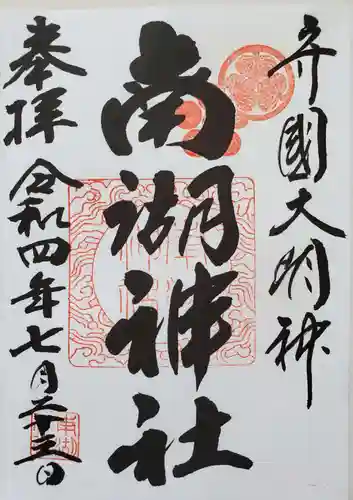 守國大明神
南湖神社
奉拝
令和四年七月二十三日